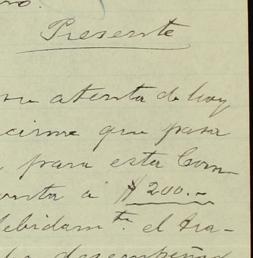 ro.
Presente
su atenta de hoy
cirme que para
para esta Com-
cuenta a $ 200.-
debidamte. el tra-
desempeñad